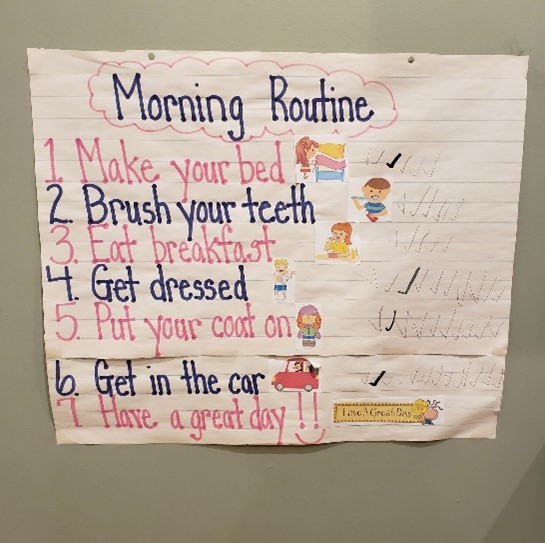 Morning Routine
1. Make your bed
2. Brush your teeth
3. Eat breakfast
4. Get dressed
5. Put your coat on
6. Get in the car
7. Have a great day!!
Have A Great Day